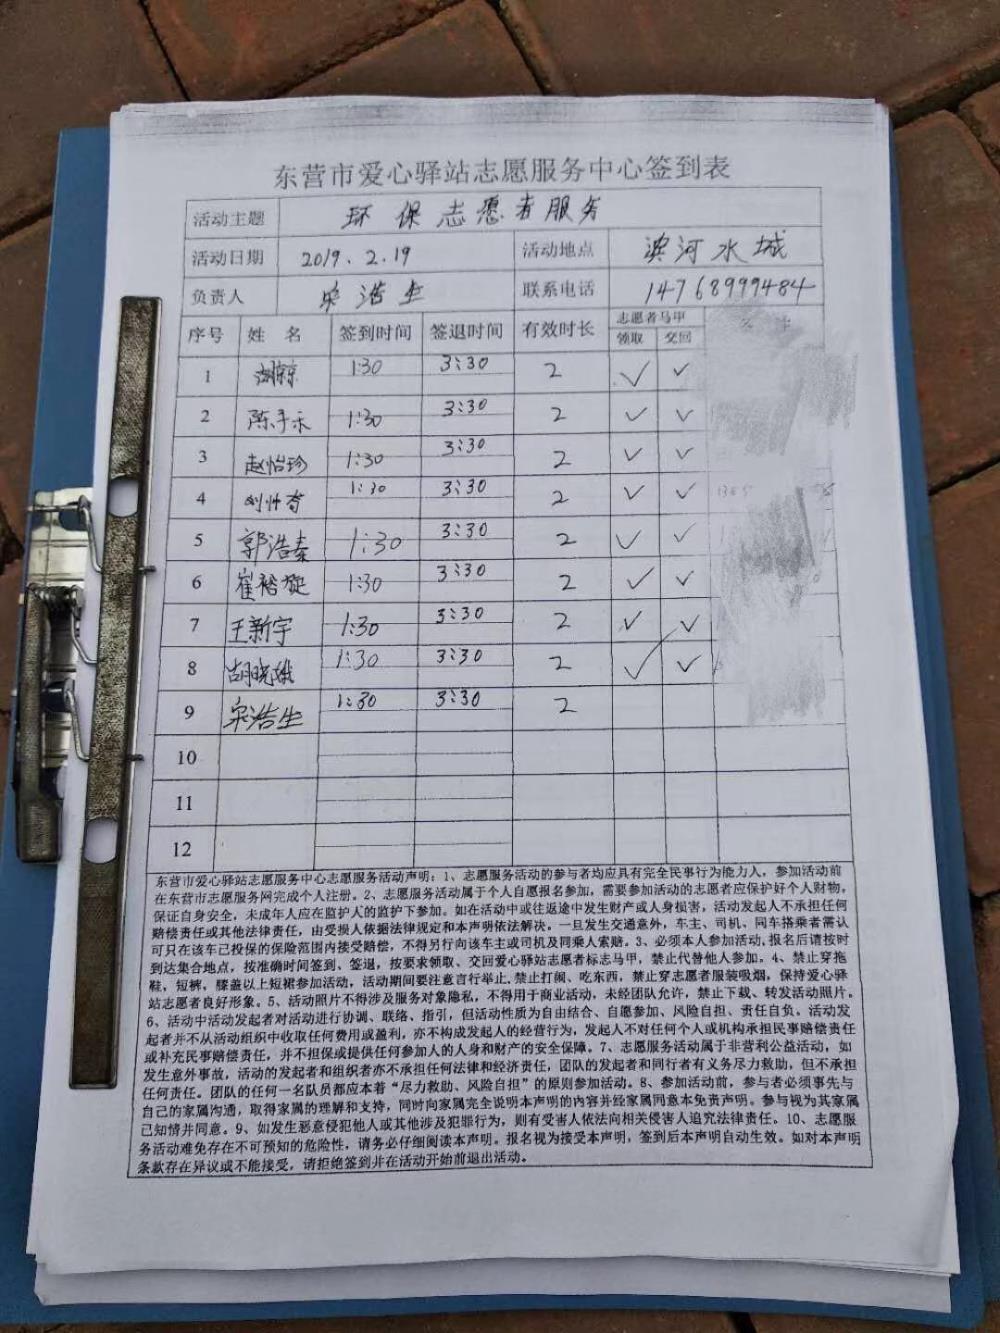 东营市爱心驿站志愿服务中心签到表
活动主题 环保志愿者服务
活动日期 2019.2.19 活动地点 滨河水城
负责人 宋浩生 联系电话 14768999484
序号 姓 名 签到时间 签退时间 有效时长 志愿者马甲
领取 交回
1 1:30 3:30 2 ✓ ✓
2 陈子禾 1:30 3:30 2 ✓ ✓
3 赵怡珍 1:30 3:30 2 ✓ ✓
4 刘帅奇 1:30 3:30 2 ✓ ✓
5 郭浩泰 1:30 3:30 2 ✓ ✓
6 崔裕旋 1:30 3:30 2 ✓ ✓
7 王新宇 1:30 3:30 2 ✓ ✓
8 胡晓娥 1:30 3:30 2 ✓ ✓
9 宋浩生 1:30 3:30 2
10
11
12
东营市爱心驿站志愿服务中心志愿服务活动声明：1、志愿服务活动的参与者均应具有完全民事行为能力人，参加活动前
在东营市志愿服务网完成个人注册。2、志愿服务活动属于个人自愿报名参加，需要参加活动的志愿者应保护好个人财物，
保证自身安全，未成年人应在监护人的监护下参加。如在活动中或往返途中发生财产或人身损害，活动发起人不承担任何
赔偿责任或其他法律责任，由受损人依据法律规定和本声明依法解决。一旦发生交通意外，车主、司机、同车搭乘者需认
可只在该车已投保的保险范围内接受赔偿，不得另行向该车主或司机及同乘人索赔。3、必须本人参加活动，报名后请按时
到达集合地点，按准确时间签到、签退，按要求领取、交回爱心驿站志愿者标志马甲，禁止代替他人参加。4、禁止穿拖
鞋，短裤，膝盖以上短裙参加活动，活动期间要注意言行举止，禁止打闹、吃东西，禁止穿志愿者服装吸烟，保持爱心驿
站志愿者良好形象。5、活动照片不得涉及服务对象隐私，不得用于商业活动，未经团队允许，禁止下载、转发活动照片。
6、活动中活动发起者对活动进行协调、联络、指引，但活动性质为自由结合、自愿参加、风险自担、责任自负。活动发
起者并不从活动组织中收取任何费用或盈利，亦不构成发起人的经营行为，发起人不对任何个人或机构承担民事赔偿责任
或补充民事赔偿责任，并不担保或提供任何参加人的人身和财产的安全保障。7、志愿服务活动属于非营利公益活动，如
发生意外事故，活动的发起者和组织者亦不承担任何法律和经济责任，团队的发起者和同行者有义务尽力救助，但不承担
任何责任。团队的任何一名队员都应本着“尽力救助、风险自担”的原则参加活动。8、参加活动前，参与者必须事先与
自己的家属沟通，取得家属的理解和支持，同时向家属完全说明本声明的内容并经家属同意本免责声明。参与视为其家属
已知情并同意。9、如发生恶意侵犯他人或其他涉及犯罪行为，则有受害人依法向相关侵害人追究法律责任。10、志愿服
务活动难免存在不可预知的危险性，请务必仔细阅读本声明。报名视为接受本声明，签到后本声明自动生效。如对本声明
条款存在异议或不能接受，请拒绝签到并在活动开始前退出活动。